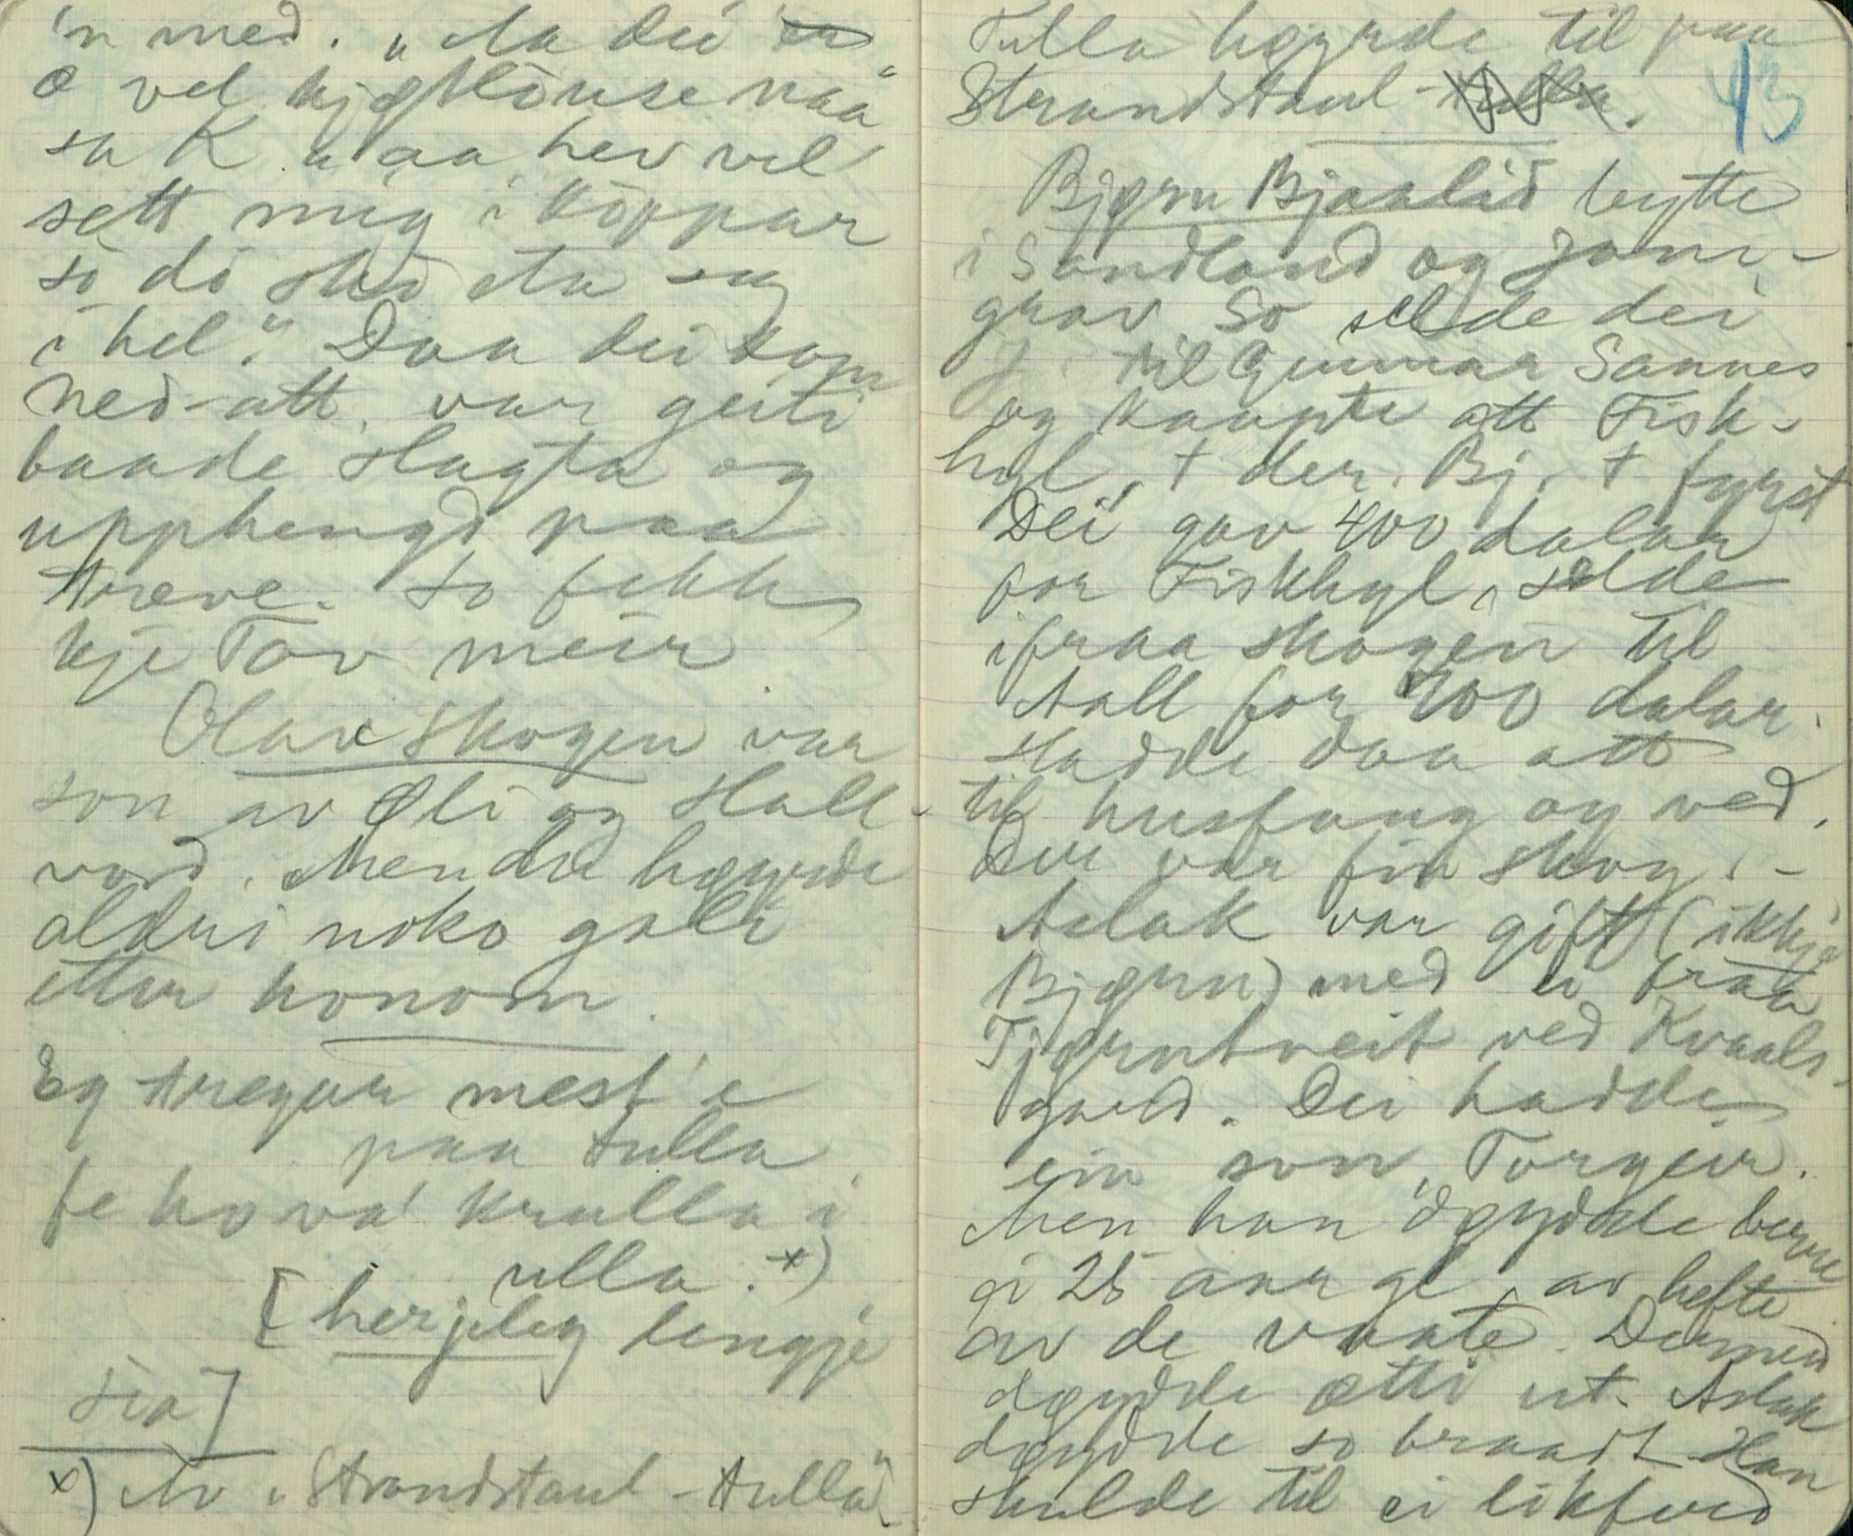 'n med. "Aa dei
æ vel kjøtlause naa"
sa K. "aa hev vel
sett mig i koppar
so dei sko eta seg
i hel." Daa dei kom
ned-att var geiti
baade slagta og
upphengd paa
treve. So fekk
kje Tov meir.
Olav Skogen var
son av Øli og Hall-
vord. Men dei høyrde
aldri noko gali
etter honom.
Eg tregar mest 'e
paa tulla
fe ho va' krulla i
ulla. x)
[herjeleg lengje
sia]
x) Av "Strandstaul-tulla".
Tulla høyrde til paa
Strandstaul-tulla.
43
Bjørn Bjaalid bytte
i Sandland og Jonn-
grav. So selde dei
J. til Gunnar Sannes
og kaupte att Fisk-
hyl, + der. Bj. + fyrst
Dei gav 400 dalar
for Fiskhyl, selde
ifraa skogen til
Aall for 700 dalar.
Hadde daa att
til husfang og ved.
Der var fin skog. -
Aslak var gift (ikkje
Bjørn) med ei fraa
Tjørntveit ved Kvaals-
gard. Dei hadde
ein son, Torgeir.
Men han døydde berre
ei 25 aar gl. av hefte
av de vaate. Dermed
døydde ætti ut. Aslak
døydde so braadt. Han
skulde til ei likferd